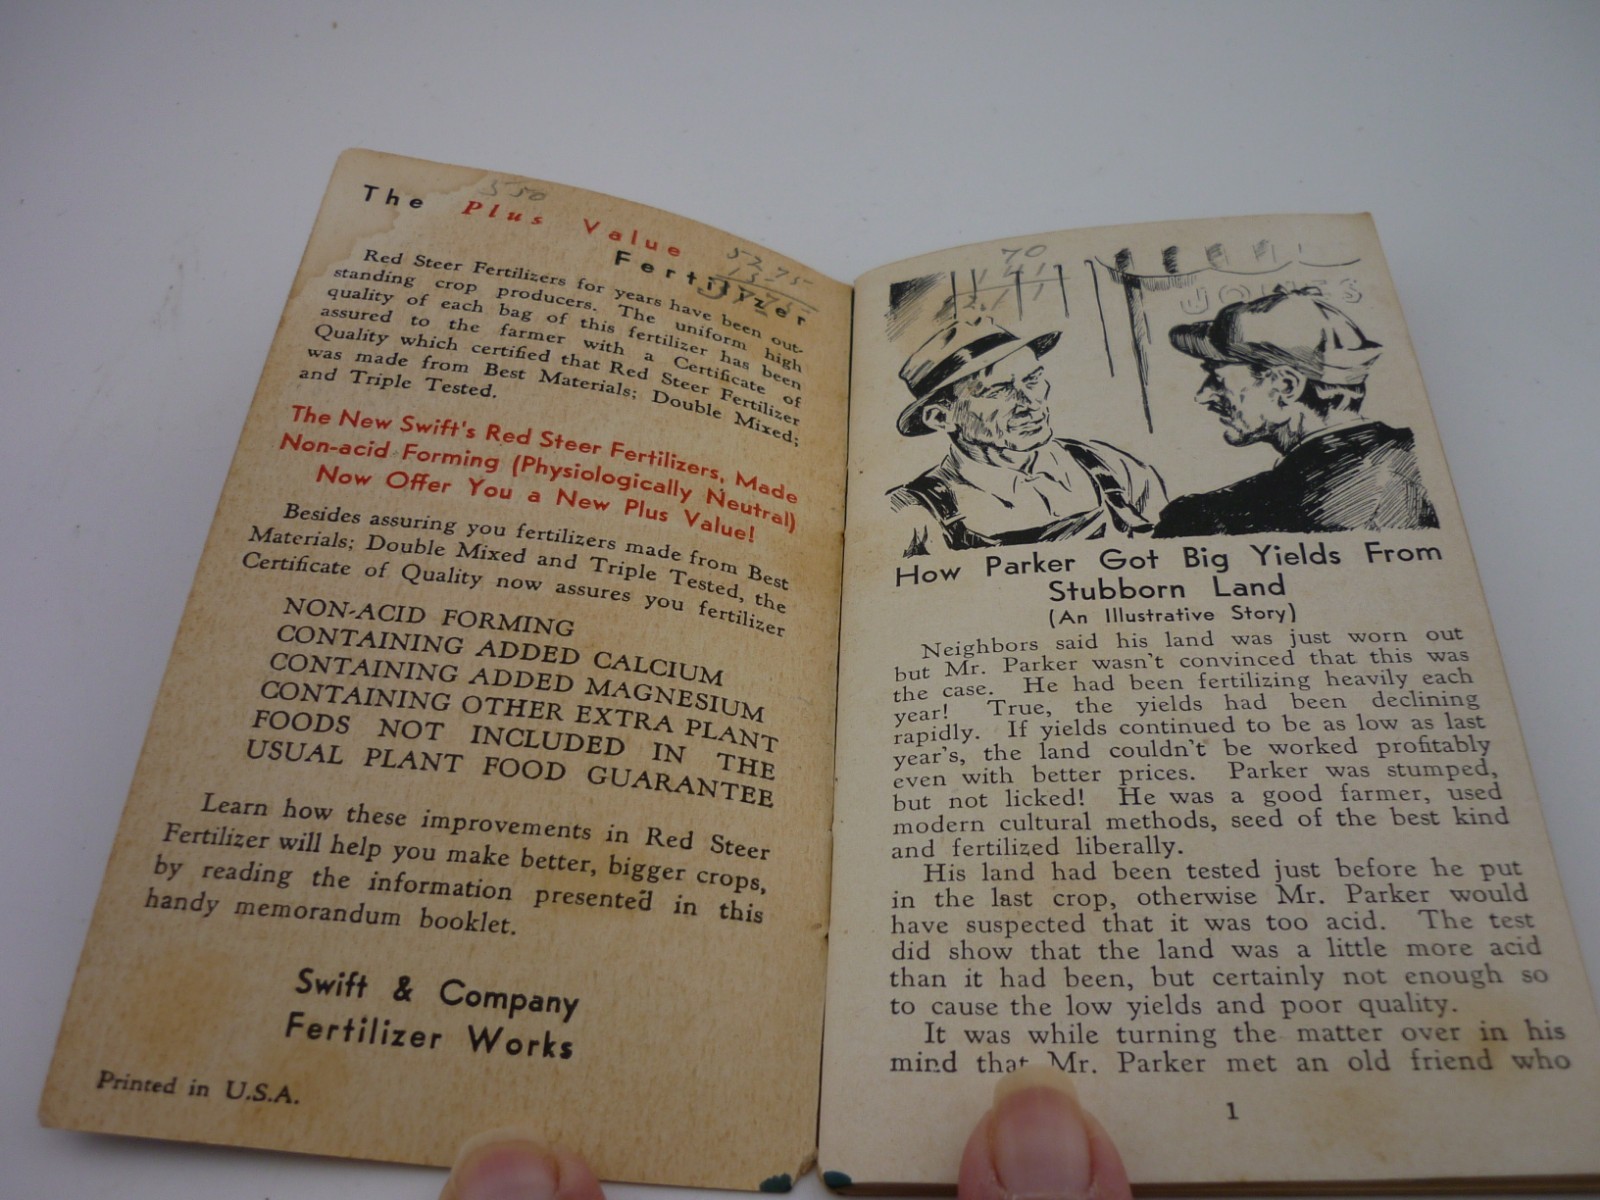 550
The Plus Value
Fertilizer
Red Steer Fertilizers for years have been out-
standing crop producers. The uniform high
quality of each bag of this fertilizer has been
assured to the farmer with a Certificate of
Quality which certified that Red Steer Fertilizer
was made from Best Materials; Double Mixed;
and Triple Tested.
The New Swift's Red Steer Fertilizers, Made
Non-acid Forming (Physiologically Neutral)
Now Offer You a New Plus Value!
Besides assuring you fertilizers made from Best
Materials; Double Mixed and Triple Tested, the
Certificate of Quality now assures you fertilizer
NON-ACID FORMING
CONTAINING ADDED CALCIUM
CONTAINING ADDED MAGNESIUM
CONTAINING OTHER EXTRA PLANT
FOODS NOT INCLUDED IN THE
USUAL PLANT FOOD GUARANTEE
Learn how these improvements in Red Steer
Fertilizer will help you make better, bigger crops,
by reading the information presented in this
handy memorandum booklet.
Swift & Company
Fertilizer Works
Printed in U.S.A.
70
JONES
How Parker Got Big Yields From
Stubborn Land
(An Illustrative Story)
Neighbors said his land was just worn out
but Mr. Parker wasn't convinced that this was
the case. He had been fertilizing heavily each
year! True, the yields had been declining
rapidly. If yields continued to be as low as last
year's, the land couldn't be worked profitably
even with better prices. Parker was stumped,
but not licked! He was a good farmer, used
modern cultural methods, seed of the best kind
and fertilized liberally.
His land had been tested just before he put
in the last crop, otherwise Mr. Parker would
have suspected that it was too acid. The test
did show that the land was a little more acid
than it had been, but certainly not enough so
to cause the low yields and poor quality.
It was while turning the matter over in his
mind that Mr. Parker met an old friend who
1